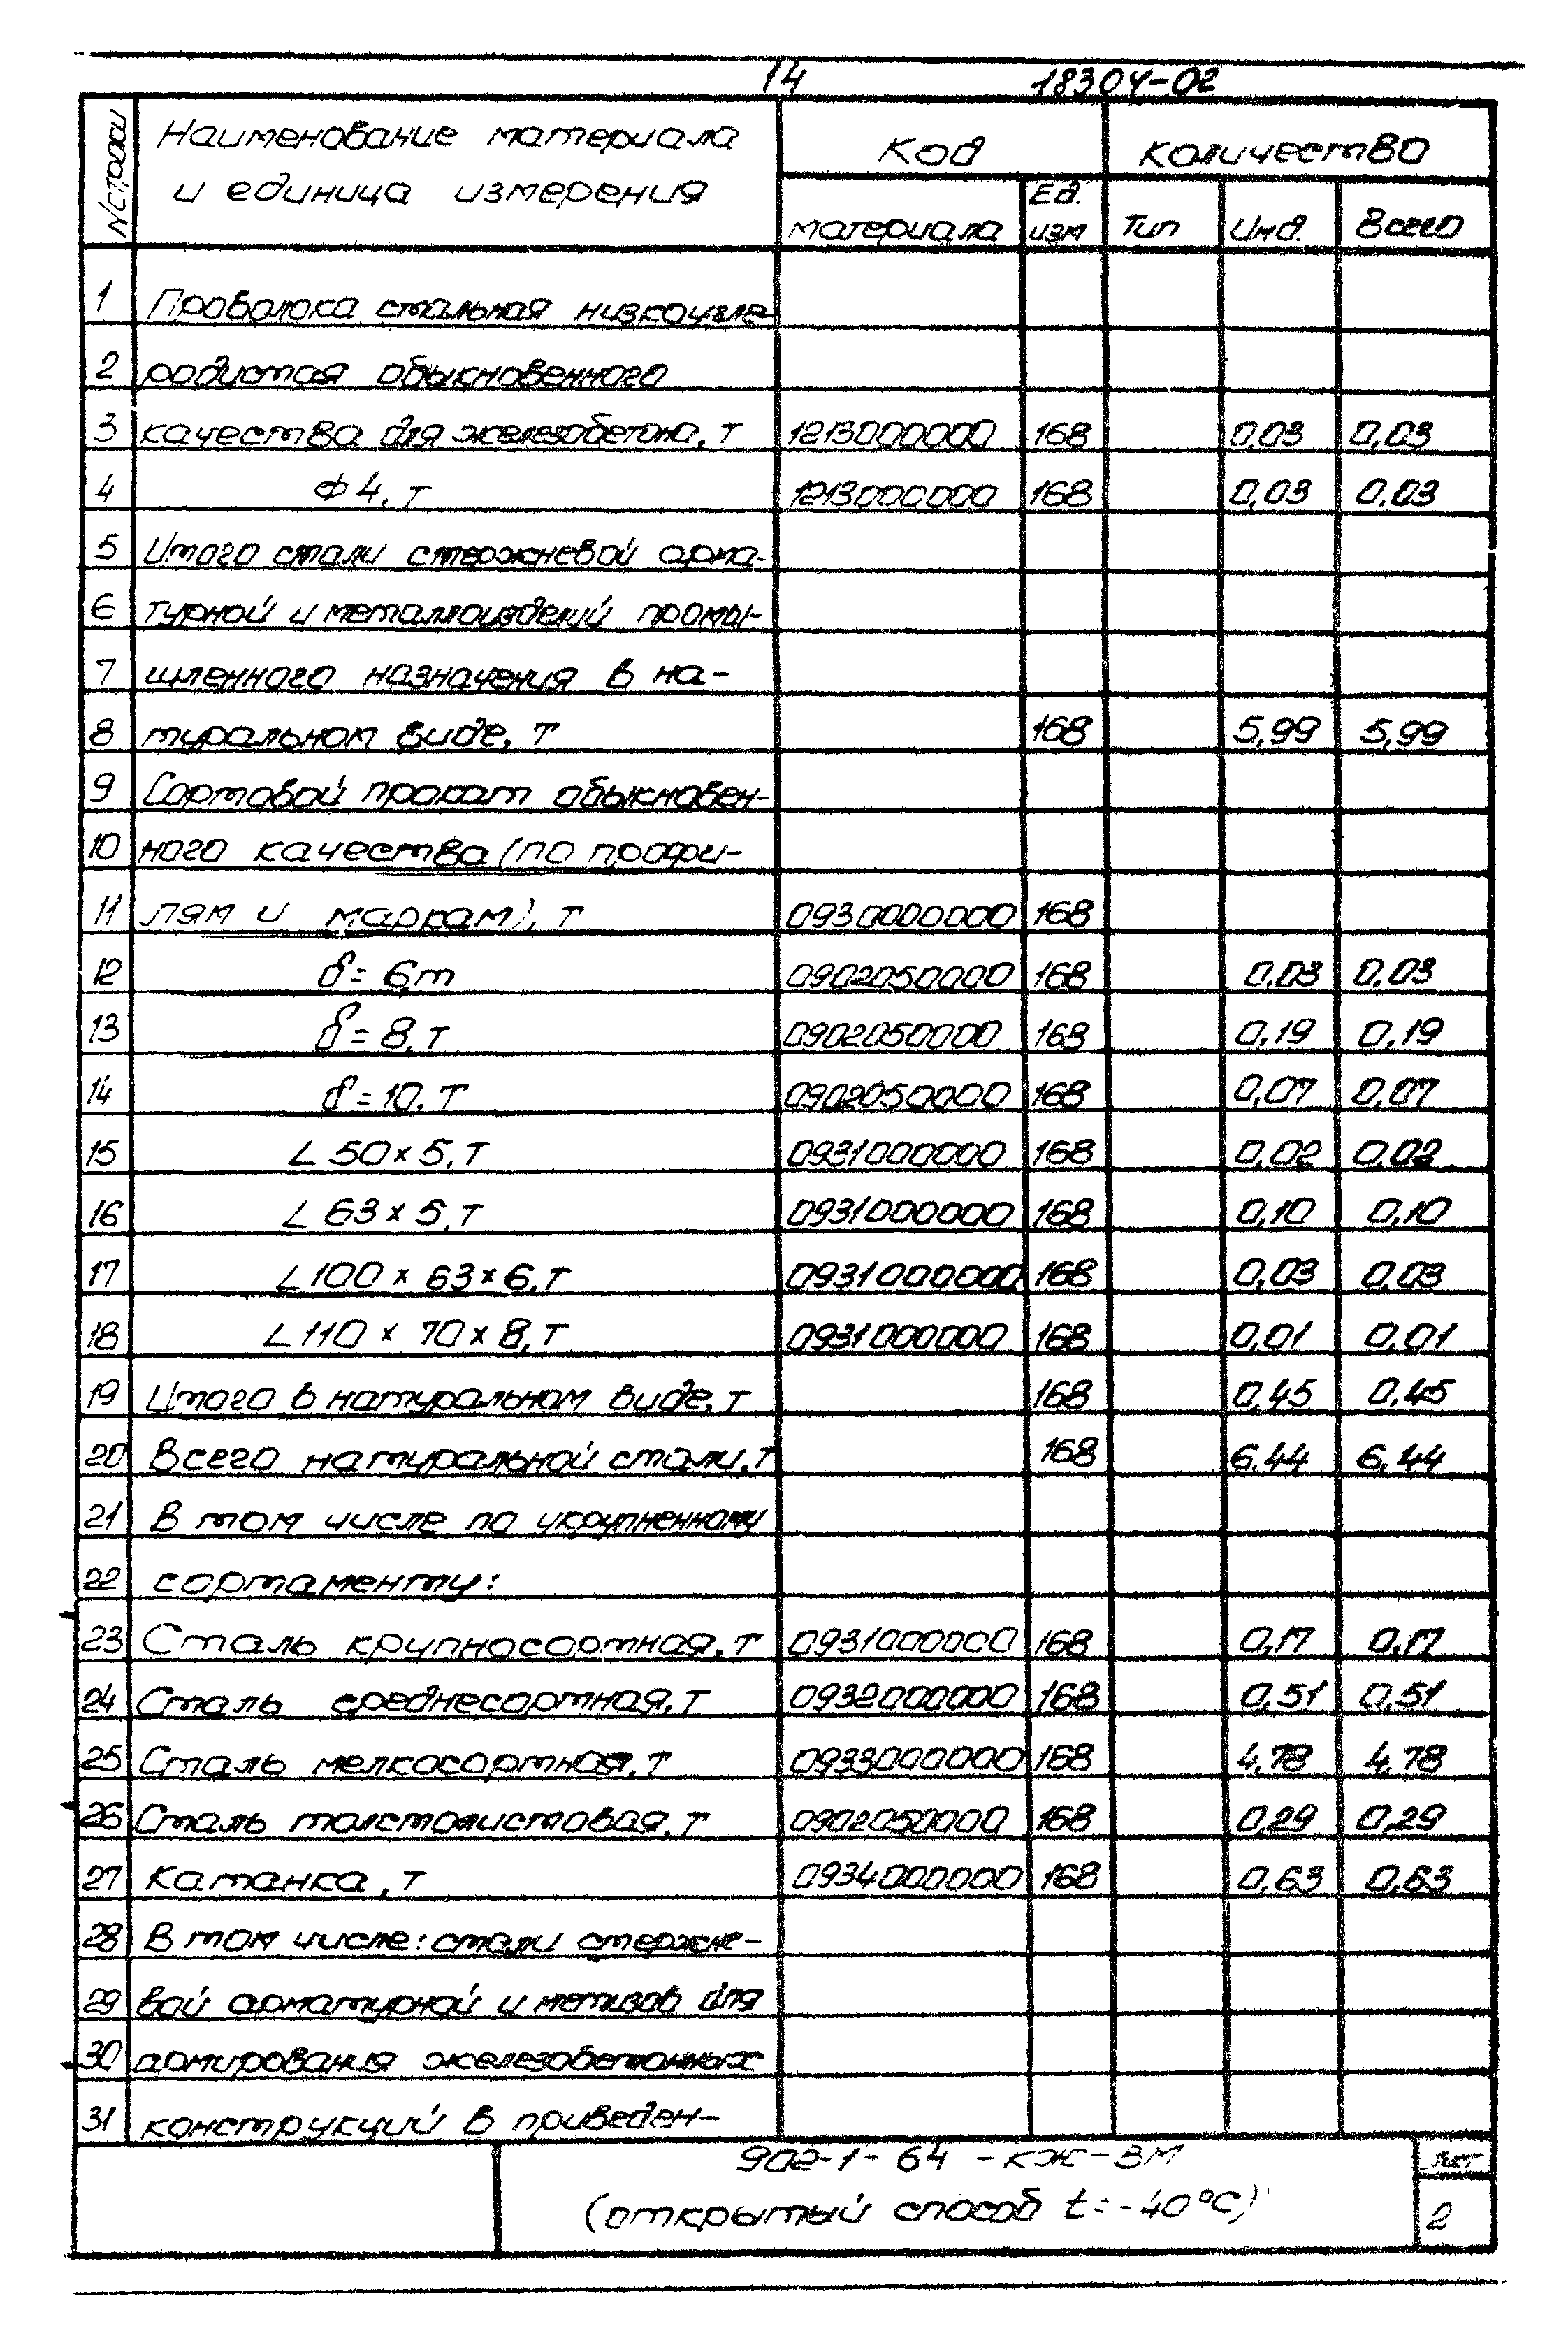 14 18304-02
№ строки Наименование материала и единица измерения Код Количество
материала Ед. изм Тип Инд. Всего
1 Проволока стальная низкоугле
2 родистая обыкновенного
3 качества для железобетона, т 1213000000 168 0,03 0,03
4 Ф4, т 1213000000 168 0,03 0,03
5 Итого стали стержневой арма-
6 турной и металлоизделий промы-
7 шленного назначения в на-
8 туральном виде, т 168 5,99 5,99
9 Сортовой прокат обыкновен-
10 ного качества (по профи-
11 лям и маркам), т 0930000000 168
12 δ= 6,т 0902050000 168 0,03 0,03
13 δ= 8, т 0902050000 168 0,19 0,19
14 δ=10, т 0902050000 168 0,07 0,07
15 L 50×5, т 0931000000 168 0,02 0,02
16 L 63×5, т 0931000000 168 0,10 0,10
17 L100×63×6, т 0931000000 168 0,03 0,03
18 L110×70×8, т 0931000000 168 0,01 0,01
19 Итого в натуральном виде, т 168 0,45 0,45
20 Всего натуральной стали, т 168 6,44 6,44
21 В том числе по укрупненному
22 сортаменту:
23 Сталь крупносортная, т 0931000000 168 0,17 0,17
24 Сталь среднесортная, т 0932000000 168 0,51 0,51
25 Сталь мелкосортная, т 0933000000 168 4,78 4,78
26 Сталь толстолистовая, т 0902050000 168 0,29 0,29
27 Катанка, т 0934000000 168 0,63 0,63
28 В том числе: стали стержне-
29 вой арматурной и метизов для
30 армирования железобетонных
31 конструкций в приведен-
902-1-64 -КЖ-ВМ Лист
(открытый способ t=-40°С) 2